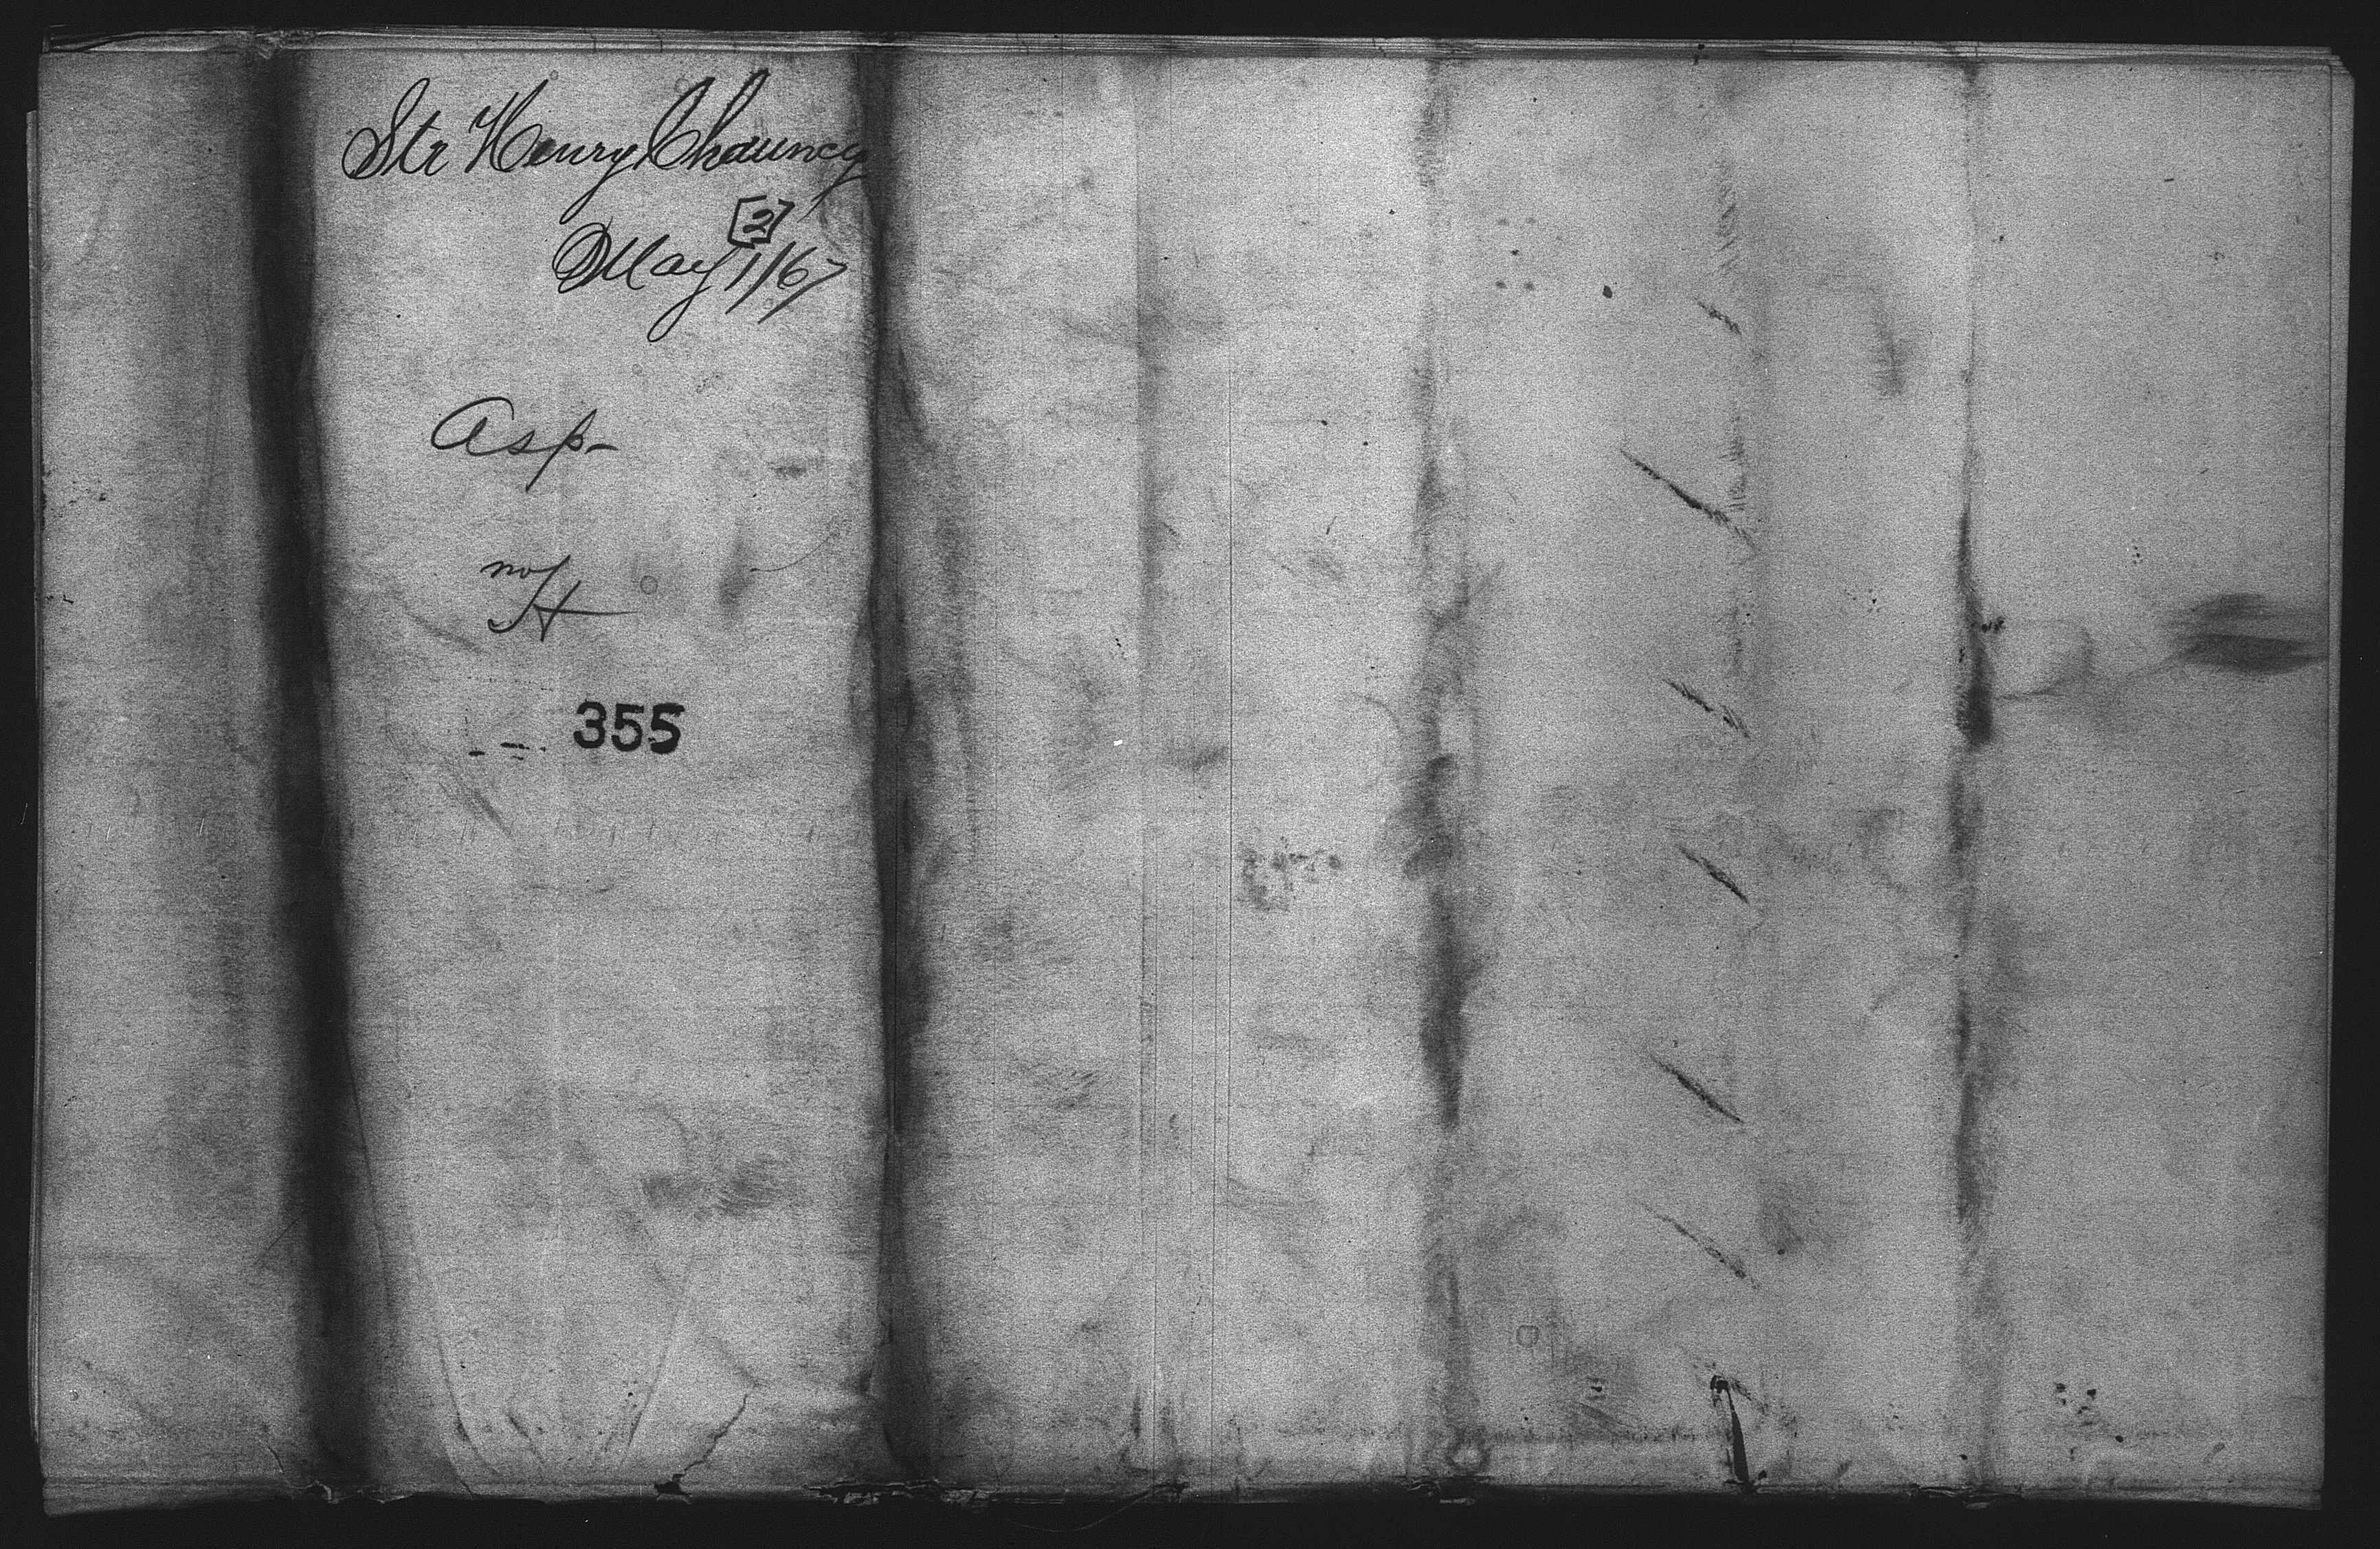 Str Henry Chauncey
[2]
May 1/67
Asp-
355